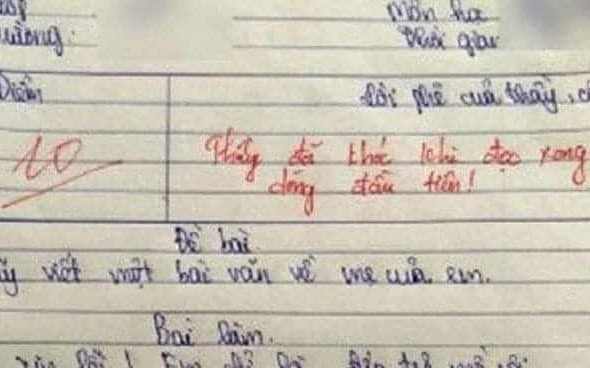 Lớp
Trường:
Môn học
Thời gian
Điểm
Lời phê của thầy, c
10
Thầy đã khóc khi đọc xong
dòng đầu tiên!
Đề bài.
ãy viết một bài văn về mẹ của em.
Bài làm.
xin lỗi! Em